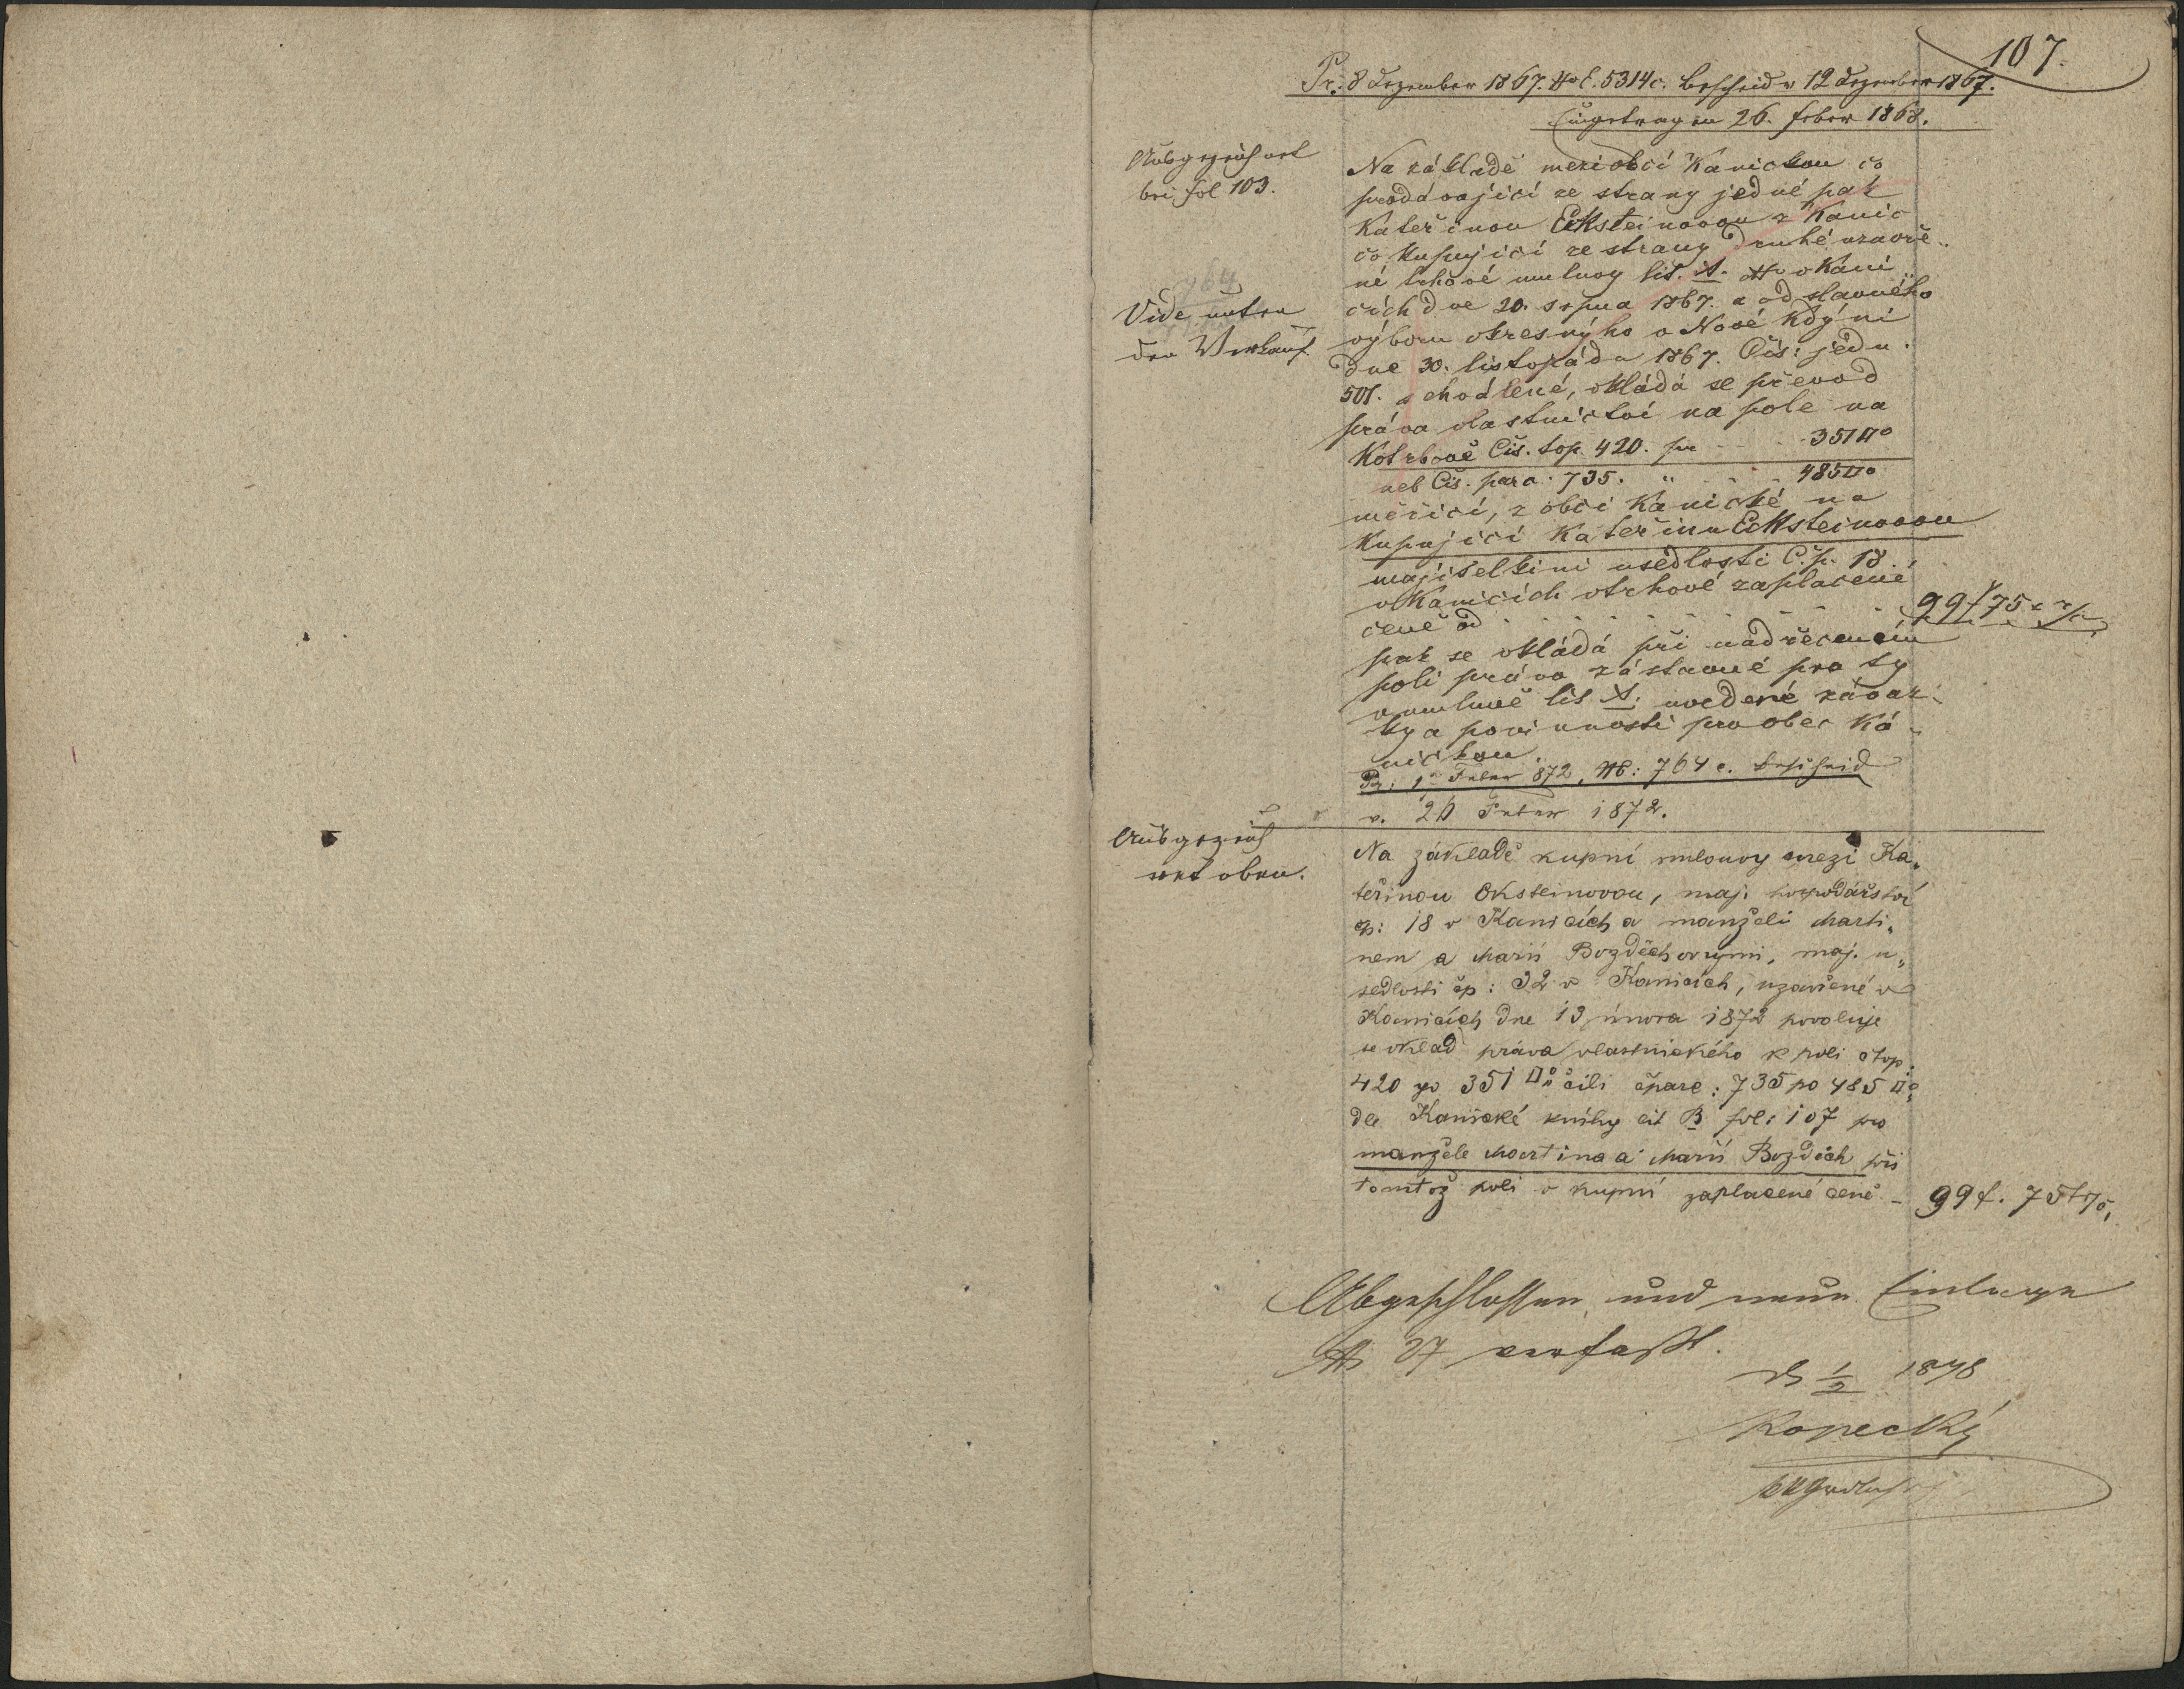 107.
Pr: 8 Dezember 1867. No E. 5314 c. Bescheid v 12 Dezember 1867.
Eingetragen 26. Feber 1868.
Ausgezeichnet
bei Fol 103.
Na základě mezi obcí Kanickou co
prodávající ze strany jedné pak
Kateřinou Ecksteinovou z Kanic
co kupující ze strany druhé uzavře-
né trhové smluvy lit. A. v Kani
cích dne 20. srpna 1867. a od slavného
Vide unten
den Verkauf.
výboru okresnýho v Nové Kdýni
dne 30. listopádu 1867. Čís: jedn.
501. schválené, vkládá se převod
práva vlastnictví na pole na
Kotrbově Čís. top. 420. pr - - - 351□°
neb Čís. parc. 735. " - - 485□°
měřící, z obci Kanické na
kupující Kateřinu Ecksteinovou
majitelkini usedlosti Č. p. 18.
v Kanicích v trhové zaplacené
ceně od - - - - - - 99 f 75 x
pak se vkládá při nadřečeném
poli právo zástavné pro ty
v umluvě lit A. uvedené závaz-
ky a povinnosti pro obec Ka-
nickou
Pr: 1 Feber 872, NE: 764 c. Bescheid
v. 20 Feber 1872.
Ausgezeich
net oben.
Na základě kupní smlouvy mezi Ka„
teřinou Eksteinovou, maj. hospodářství
čp: 18 v Kanicích a manželi Marti„
nem a Marií Bozděchovými, maj. u„
sedlosti čp: 32 v Kanicích, uzavřené v
Kanicích dne 13 února 1872 povoluje
se vklad práva vlastnického k poli čtop.
420 po 351□° čili čparc: 735 po 485□°
dle Kanické knihy lit B fol: 107 pro
manžele Martina a Marii Bozděch při
tomtéž poli v kupní zaplacené ceně - 99 f. 75 x
Abgeschlossen und neue Einlage
No 27 verfasst.
1/2 1878
Kopecký